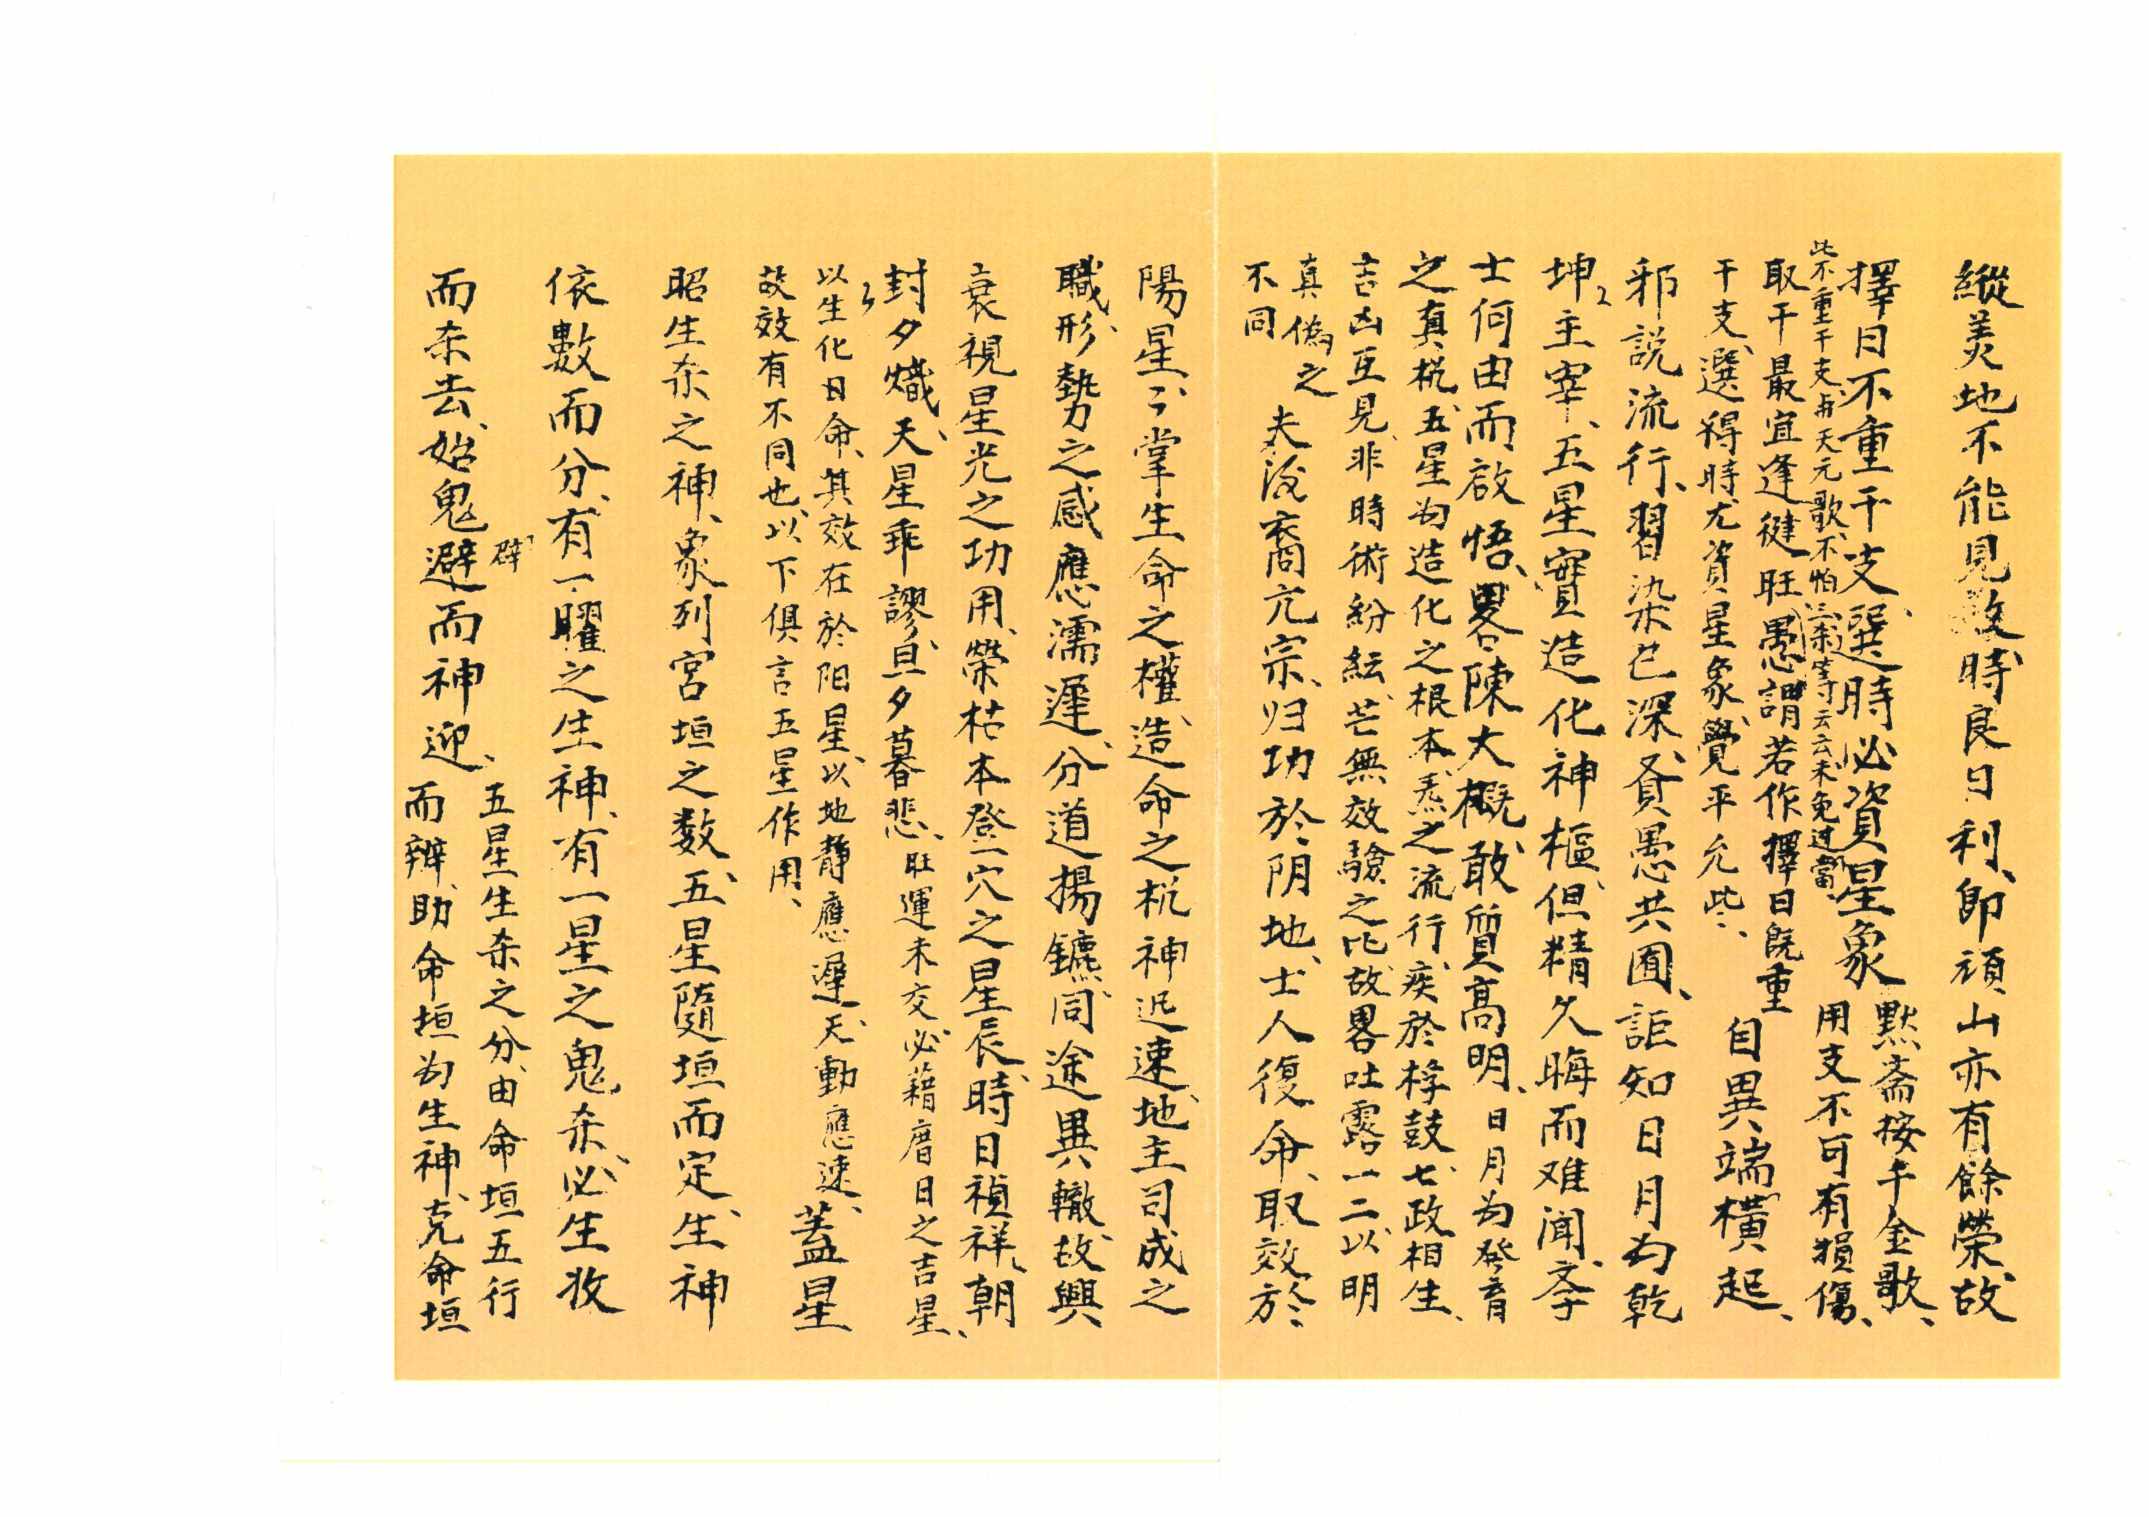 縱美地不能見效、時良日利、即頑山亦有餘榮、故
擇日不重干支、選時必資星象
默斋按千金歌、
用支不可有損傷、
此不重干支、与天元歌、不怕三杀等云云未免过當、
取干最宜逢健旺、愚謂若作擇日既重
干支、選得時、尤資星象、覺平允些、
自異端橫起、
邪説流行、習染已深、賢愚共囿、詎知日月為乾
坤主宰、五星寶造化神樞、但精久晦而难闻、
士何由而啟悟、畧陳大概、敢質高明、日月为發育
之真机、五星为造化之根本、炁之流行、疾於桴鼓、七政相生、
吉凶互見、非時術紛紜、芒無效驗之比、故畧吐露一二、以明
真偽之
不同
夫後裔亢宗、归功於阴地、士人復命、取效於
陽星、星掌生命之權、造命之机神迅速、地主司成之
職、形勢之感應濡遲、分道揚鑣、同途異轍、故興
衰視星光之功用、榮枯本登穴之星辰、時日禎祥、朝
封夕熾、天星乖謬、旦夕暮悲、旺運未交、必藉曆日之吉星、
以生化日命、其效在於阳星、以地静應遲、天動應速、
故效有不同也、以下俱言五星作用、
蓋星
昭生杀之神、象列宮垣之数、五星隨垣而定、生神
依數而分、有一曜之生神、有一星之鬼杀、必生收
而杀去、始鬼避而神迎、
辟
五星生杀之分、由命垣五行
而辨、助命垣为生神、克命垣